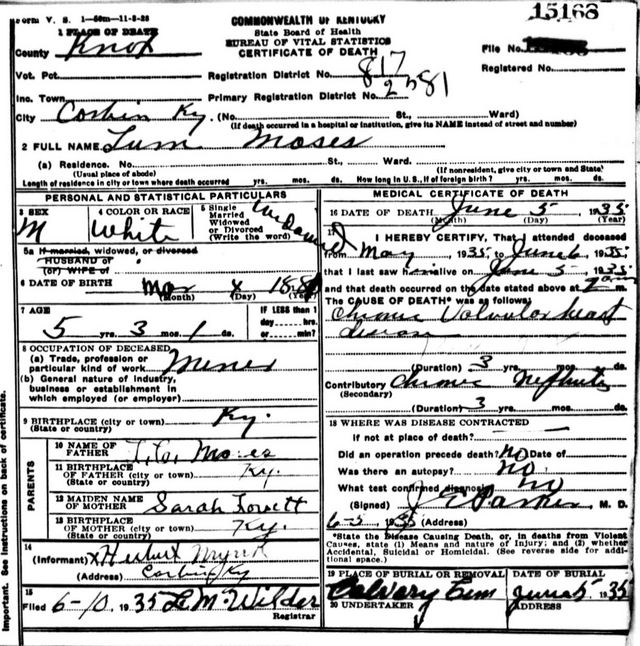 Form V. S. 1—50m—11-8-28
COMMONWEALTH OF KENTUCKY
State Board of Health
BUREAU OF VITAL STATISTICS
CERTIFICATE OF DEATH
15168
File No.
Registered No.
1 PLACE OF DEATH
County Knox
Vot. Pct.
Registration District No. 817
Inc. Town
Primary Registration District No. 2581
City Corbin Ky. (No. St., Ward)
(If death occurred in a hospital or institution, give its NAME instead of street and number)
2 FULL NAME Lum Moses
(a) Residence. No. St., Ward.
(Usual place of abode) (If nonresident, give city or town and State)
Length of residence in city or town where death occurred yrs. mos. ds. How long in U. S., if of foreign birth? yrs. mos. ds.
PERSONAL AND STATISTICAL PARTICULARS
3 SEX M
4 COLOR OR RACE White
5 Single Married Widowed or Divorced (Write the word)
5a If married, widowed, or divorced
HUSBAND of
(or) WIFE of
6 DATE OF BIRTH Mar 4 1880
(Month) (Day) (Year)
7 AGE
IF LESS than 1
day hrs.
or min?
5 yrs. 3 mos. 1 ds.
8 OCCUPATION OF DECEASED
(a) Trade, profession or
particular kind of work Miner
(b) General nature of industry,
business or establishment in
which employed (or employer)
9 BIRTHPLACE (city or town) Ky.
(State or country)
PARENTS
10 NAME OF
FATHER Moses
11 BIRTHPLACE
OF FATHER (city or town) Ky.
(State or country)
12 MAIDEN NAME
OF MOTHER Sarah Lovett
13 BIRTHPLACE
OF MOTHER (city or town) Ky.
(State or country)
14
(Informant) x Herbert
(Address) Corbin Ky
15
Filed 6-10, 1935 L M. Wilder
Registrar
MEDICAL CERTIFICATE OF DEATH
16 DATE OF DEATH June 5 1935
(Month) (Day) (Year)
17
I HEREBY CERTIFY, That I attended deceased
from May, 1935, to June 6, 1935,
that I last saw him alive on June 5, 1935
and that death occurred on the date stated above at
The CAUSE OF DEATH* was as follows:
Chronic Valvular heart
disease
(Duration) 3 yrs. mos. ds.
Contributory Chronic Nephritis
(Secondary)
(Duration) 3 yrs. mos. ds.
18 WHERE WAS DISEASE CONTRACTED
If not at place of death?
Did an operation precede death? NO Date of
Was there an autopsy? NO
What test confirmed diagnosis? NO
(Signed) J E Parker M. D.
6-5, 1935 (Address)
*State the Disease Causing Death, or, in deaths from Violent
Causes, state (1) Means and nature of Injury; and (2) whether
Accidental, Suicidal or Homicidal. (See reverse side for addi-
tional space.)
19 PLACE OF BURIAL OR REMOVAL Calvary Cem
DATE OF BURIAL June 5 1935
20 UNDERTAKER
ADDRESS
Important. See instructions on back of certificate.